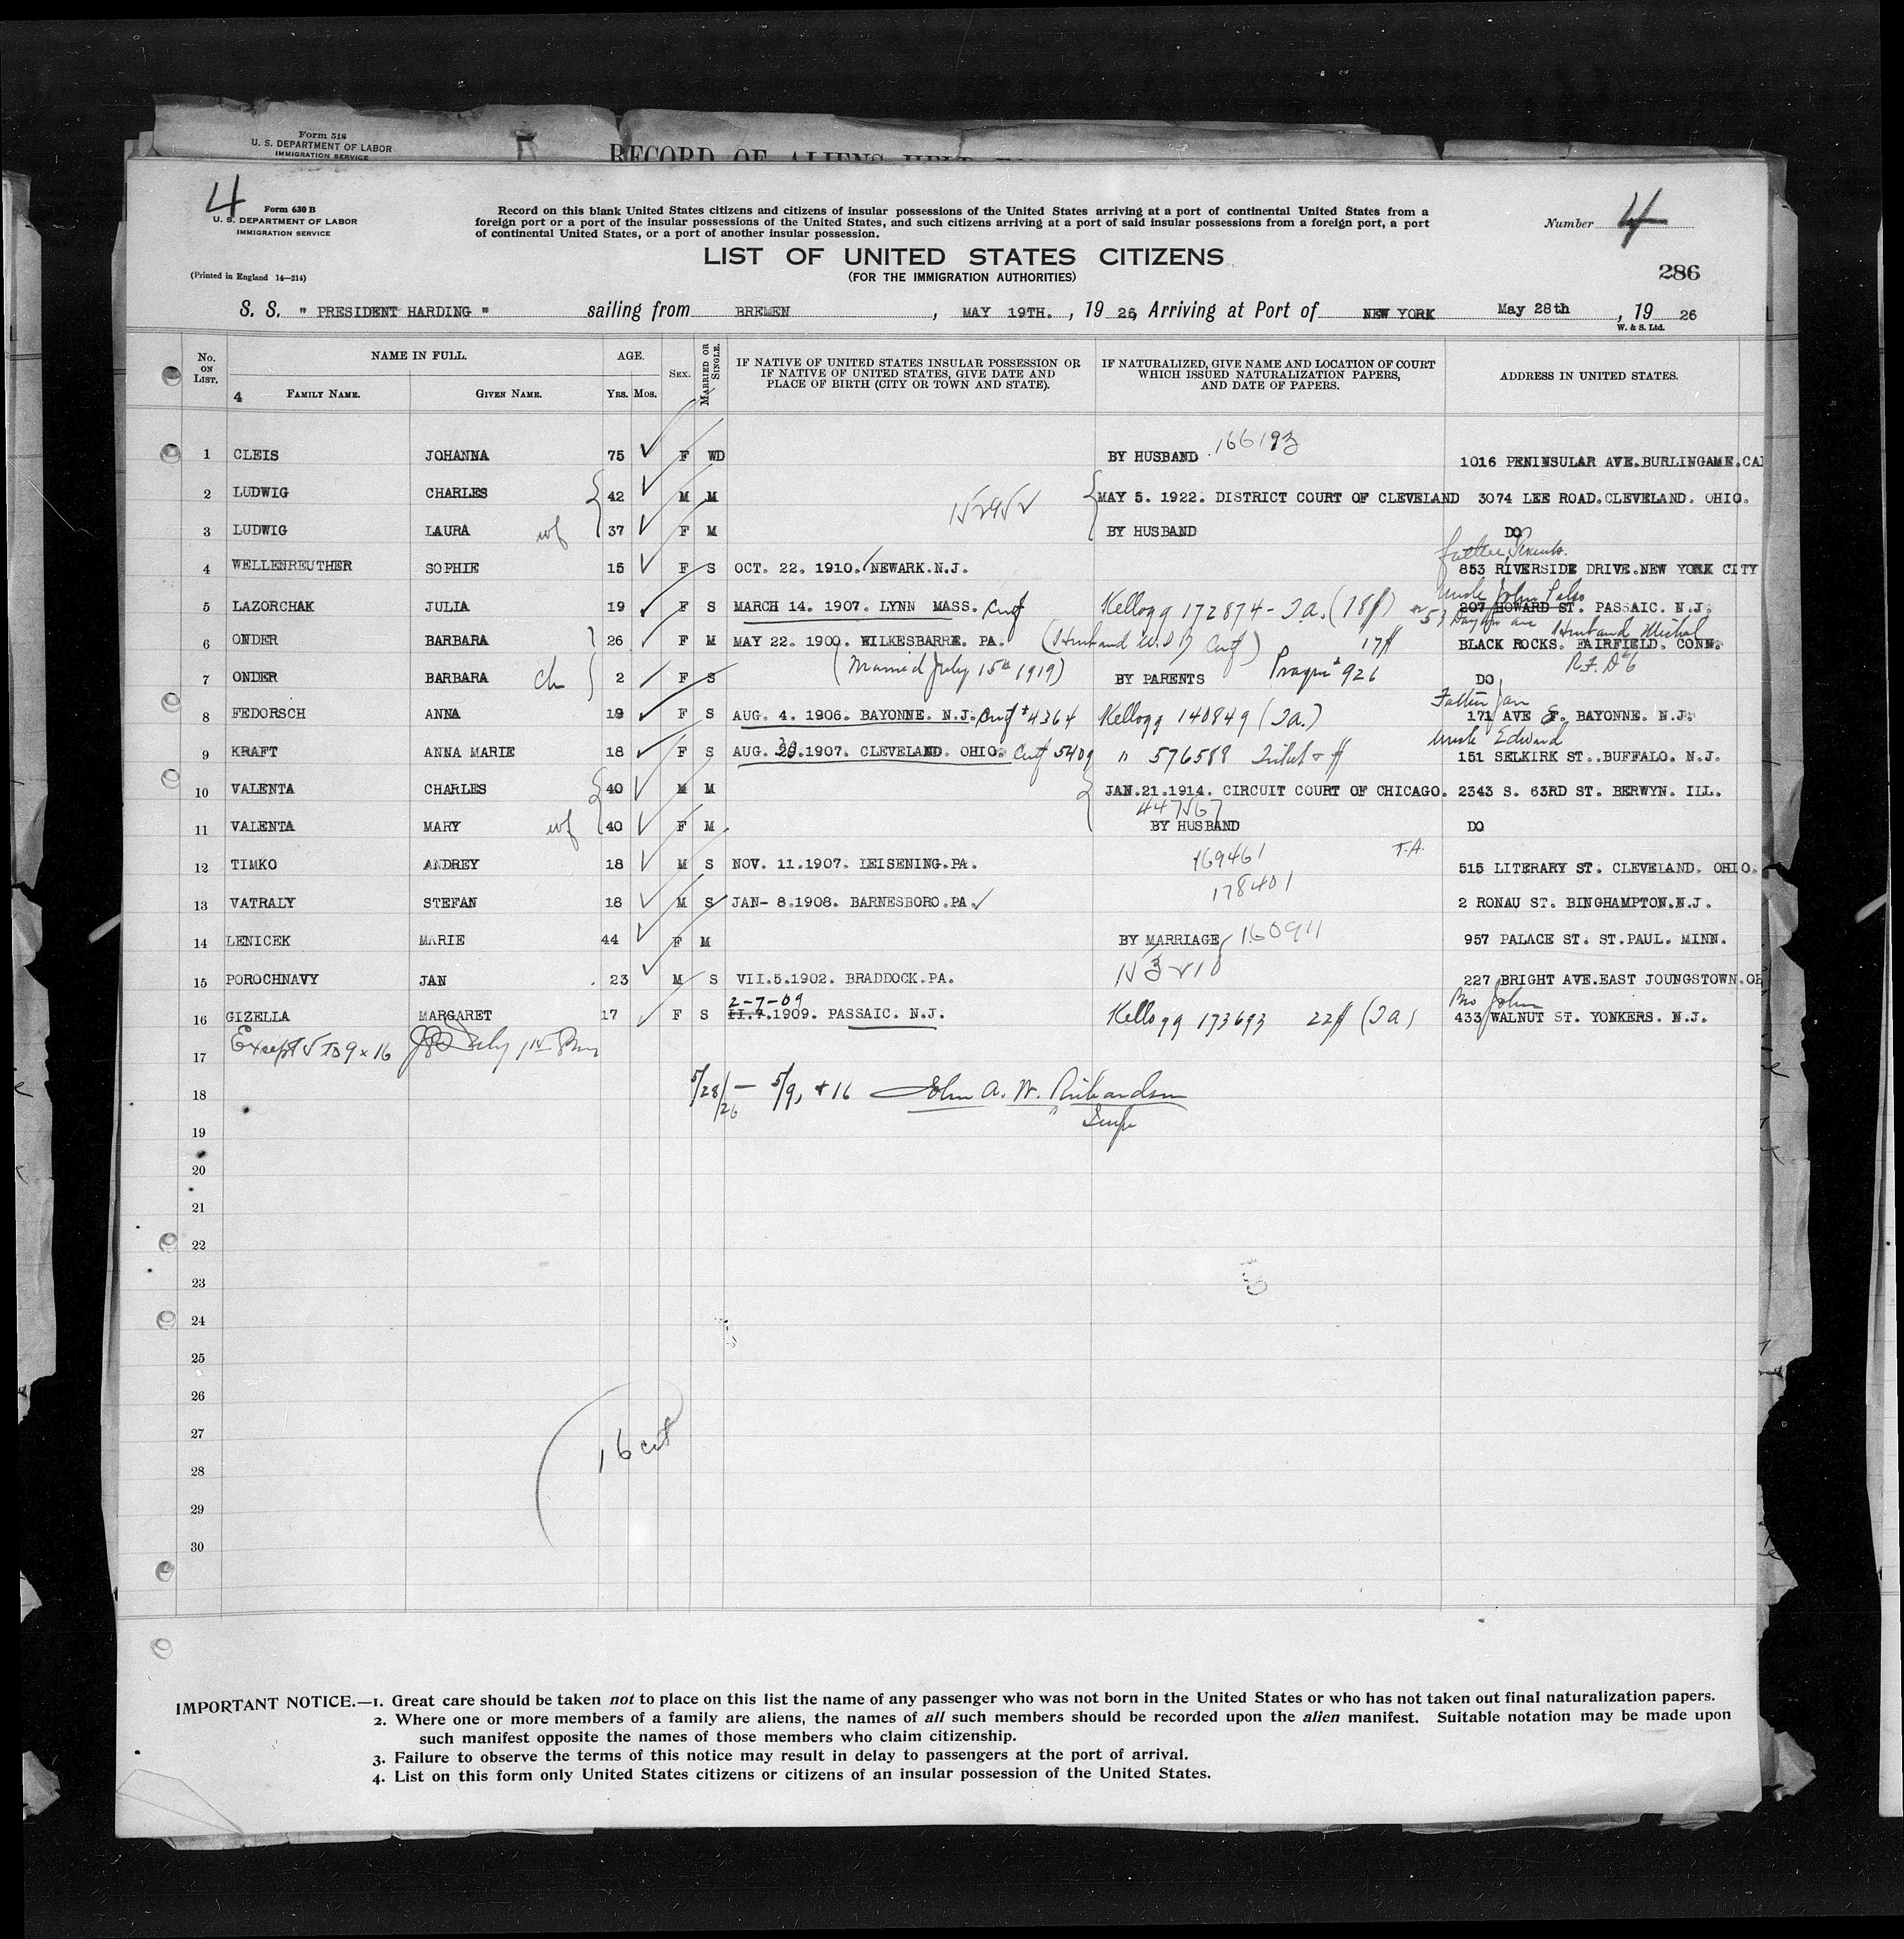 Form 518
U. S. DEPARTMENT OF LABOR
IMMIGRATION SERVICE
RECORD OF ALIENS HELD
4
Form 630 B
U. S. DEPARTMENT OF LABOR
IMMIGRATION SERVICE
(Printed in England 14—214)
Record on this blank United States citizens and citizens of insular possessions of the United States arriving at a port of continental United States from a
foreign port or a port of the insular possessions of the United States, and such citizens arriving at a port of said insular possessions from a foreign port, a port
of continental United States, or a port of another insular possession.
Number 4
LIST OF UNITED STATES CITIZENS
(FOR THE IMMIGRATION AUTHORITIES)
286
S. S. " PRESIDENT HARDING " sailing from BREMEN , MAY 19TH. , 19 26, Arriving at Port of NEW YORK May 28th , 19 26
W. & S. Ltd.
No. ON LIST. NAME IN FULL. AGE. SEX. MARRIED OR SINGLE. IF NATIVE OF UNITED STATES INSULAR POSSESSION OR IF NATIVE OF UNITED STATES, GIVE DATE AND PLACE OF BIRTH (CITY OR TOWN AND STATE). IF NATURALIZED, GIVE NAME AND LOCATION OF COURT WHICH ISSUED NATURALIZATION PAPERS, AND DATE OF PAPERS. ADDRESS IN UNITED STATES.
4 FAMILY NAME. GIVEN NAME. YRS. MOS.
1 CLEIS JOHANNA 75 F WD BY HUSBAND 166193 1016 PENINSULAR AVE.BURLINGAME.CAL
2 LUDWIG CHARLES 42 M M MAY 5. 1922. DISTRICT COURT OF CLEVELAND 3074 LEE ROAD.CLEVELAND. OHIO.
152952
3 LUDWIG LAURA wf 37 F M BY HUSBAND DO
father
4 WELLENREUTHER SOPHIE 15 F S OCT. 22. 1910. NEWARK.N.J. 853 RIVERSIDE DRIVE.NEW YORK CITY
Uncle John
5 LAZORCHAK JULIA 19 F S MARCH 14. 1907. LYNN MASS. Cert Kellogg 172874 - Ia. (18ff) 207 HOWARD ST. PASSAIC. N.J.
Husband Michal
6 ONDER BARBARA 26 F M MAY 22. 1900. WILKESBARRE. PA. (Husband U.S. Cert) 17ff BLACK ROCKS. FAIRFIELD. CONN.
R.F.D #6
7 ONDER BARBARA ch 2 F S (Married July 15th 1919) BY PARENTS Prague # 926 DO
Father Jan
8 FEDORSCH ANNA 19 F S AUG. 4. 1906. BAYONNE. N.J. Cert #4364 Kellogg 140849 (Ia.) 171 AVE F. BAYONNE. N.J.
Uncle Edward
9 KRAFT ANNA MARIE 18 F S AUG. 30.1907. CLEVELAND. OHIO. Cert 5409 " 576588 151 SELKIRK ST..BUFFALO. N.J.
10 VALENTA CHARLES 40 M M JAN.21.1914. CIRCUIT COURT OF CHICAGO. 2343 S. 63RD ST. BERWYN. ILL.
447567
11 VALENTA MARY wf 40 F M BY HUSBAND DO
12 TIMKO ANDREY 18 M S NOV. 11.1907. LEISENING.PA. 169461 T.A. 515 LITERARY ST. CLEVELAND. OHIO.
13 VATRALY STEFAN 18 M S JAN- 8.1908. BARNESBORO.PA. 178401 2 RONAU ST. BINGHAMPTON.N.J.
14 LENICEK MARIE 44 F M BY MARRIAGE 160911 957 PALACE ST. ST.PAUL. MINN.
15 POROCHNAVY JAN 23 M S VII.5.1902. BRADDOCK.PA. 227 BRIGHT AVE.EAST JOUNGSTOWN.OH
2-7-09
Bro John
16 GIZELLA MARGARET 17 F S II.7.1909. PASSAIC. N.J. Kellogg 173693 22ff (Ia) 433 WALNUT ST. YONKERS. N.J.
Except 5 to 9 x 16
17
18 5/28/26 — 5/9, + 16 John A. W. Richardson
Insp
19
20
21
22
23
24
25
26
27
16 cit
28
29
30
IMPORTANT NOTICE.—1. Great care should be taken not to place on this list the name of any passenger who was not born in the United States or who has not taken out final naturalization papers.
2. Where one or more members of a family are aliens, the names of all such members should be recorded upon the alien manifest. Suitable notation may be made upon
such manifest opposite the names of those members who claim citizenship.
3. Failure to observe the terms of this notice may result in delay to passengers at the port of arrival.
4. List on this form only United States citizens or citizens of an insular possession of the United States.